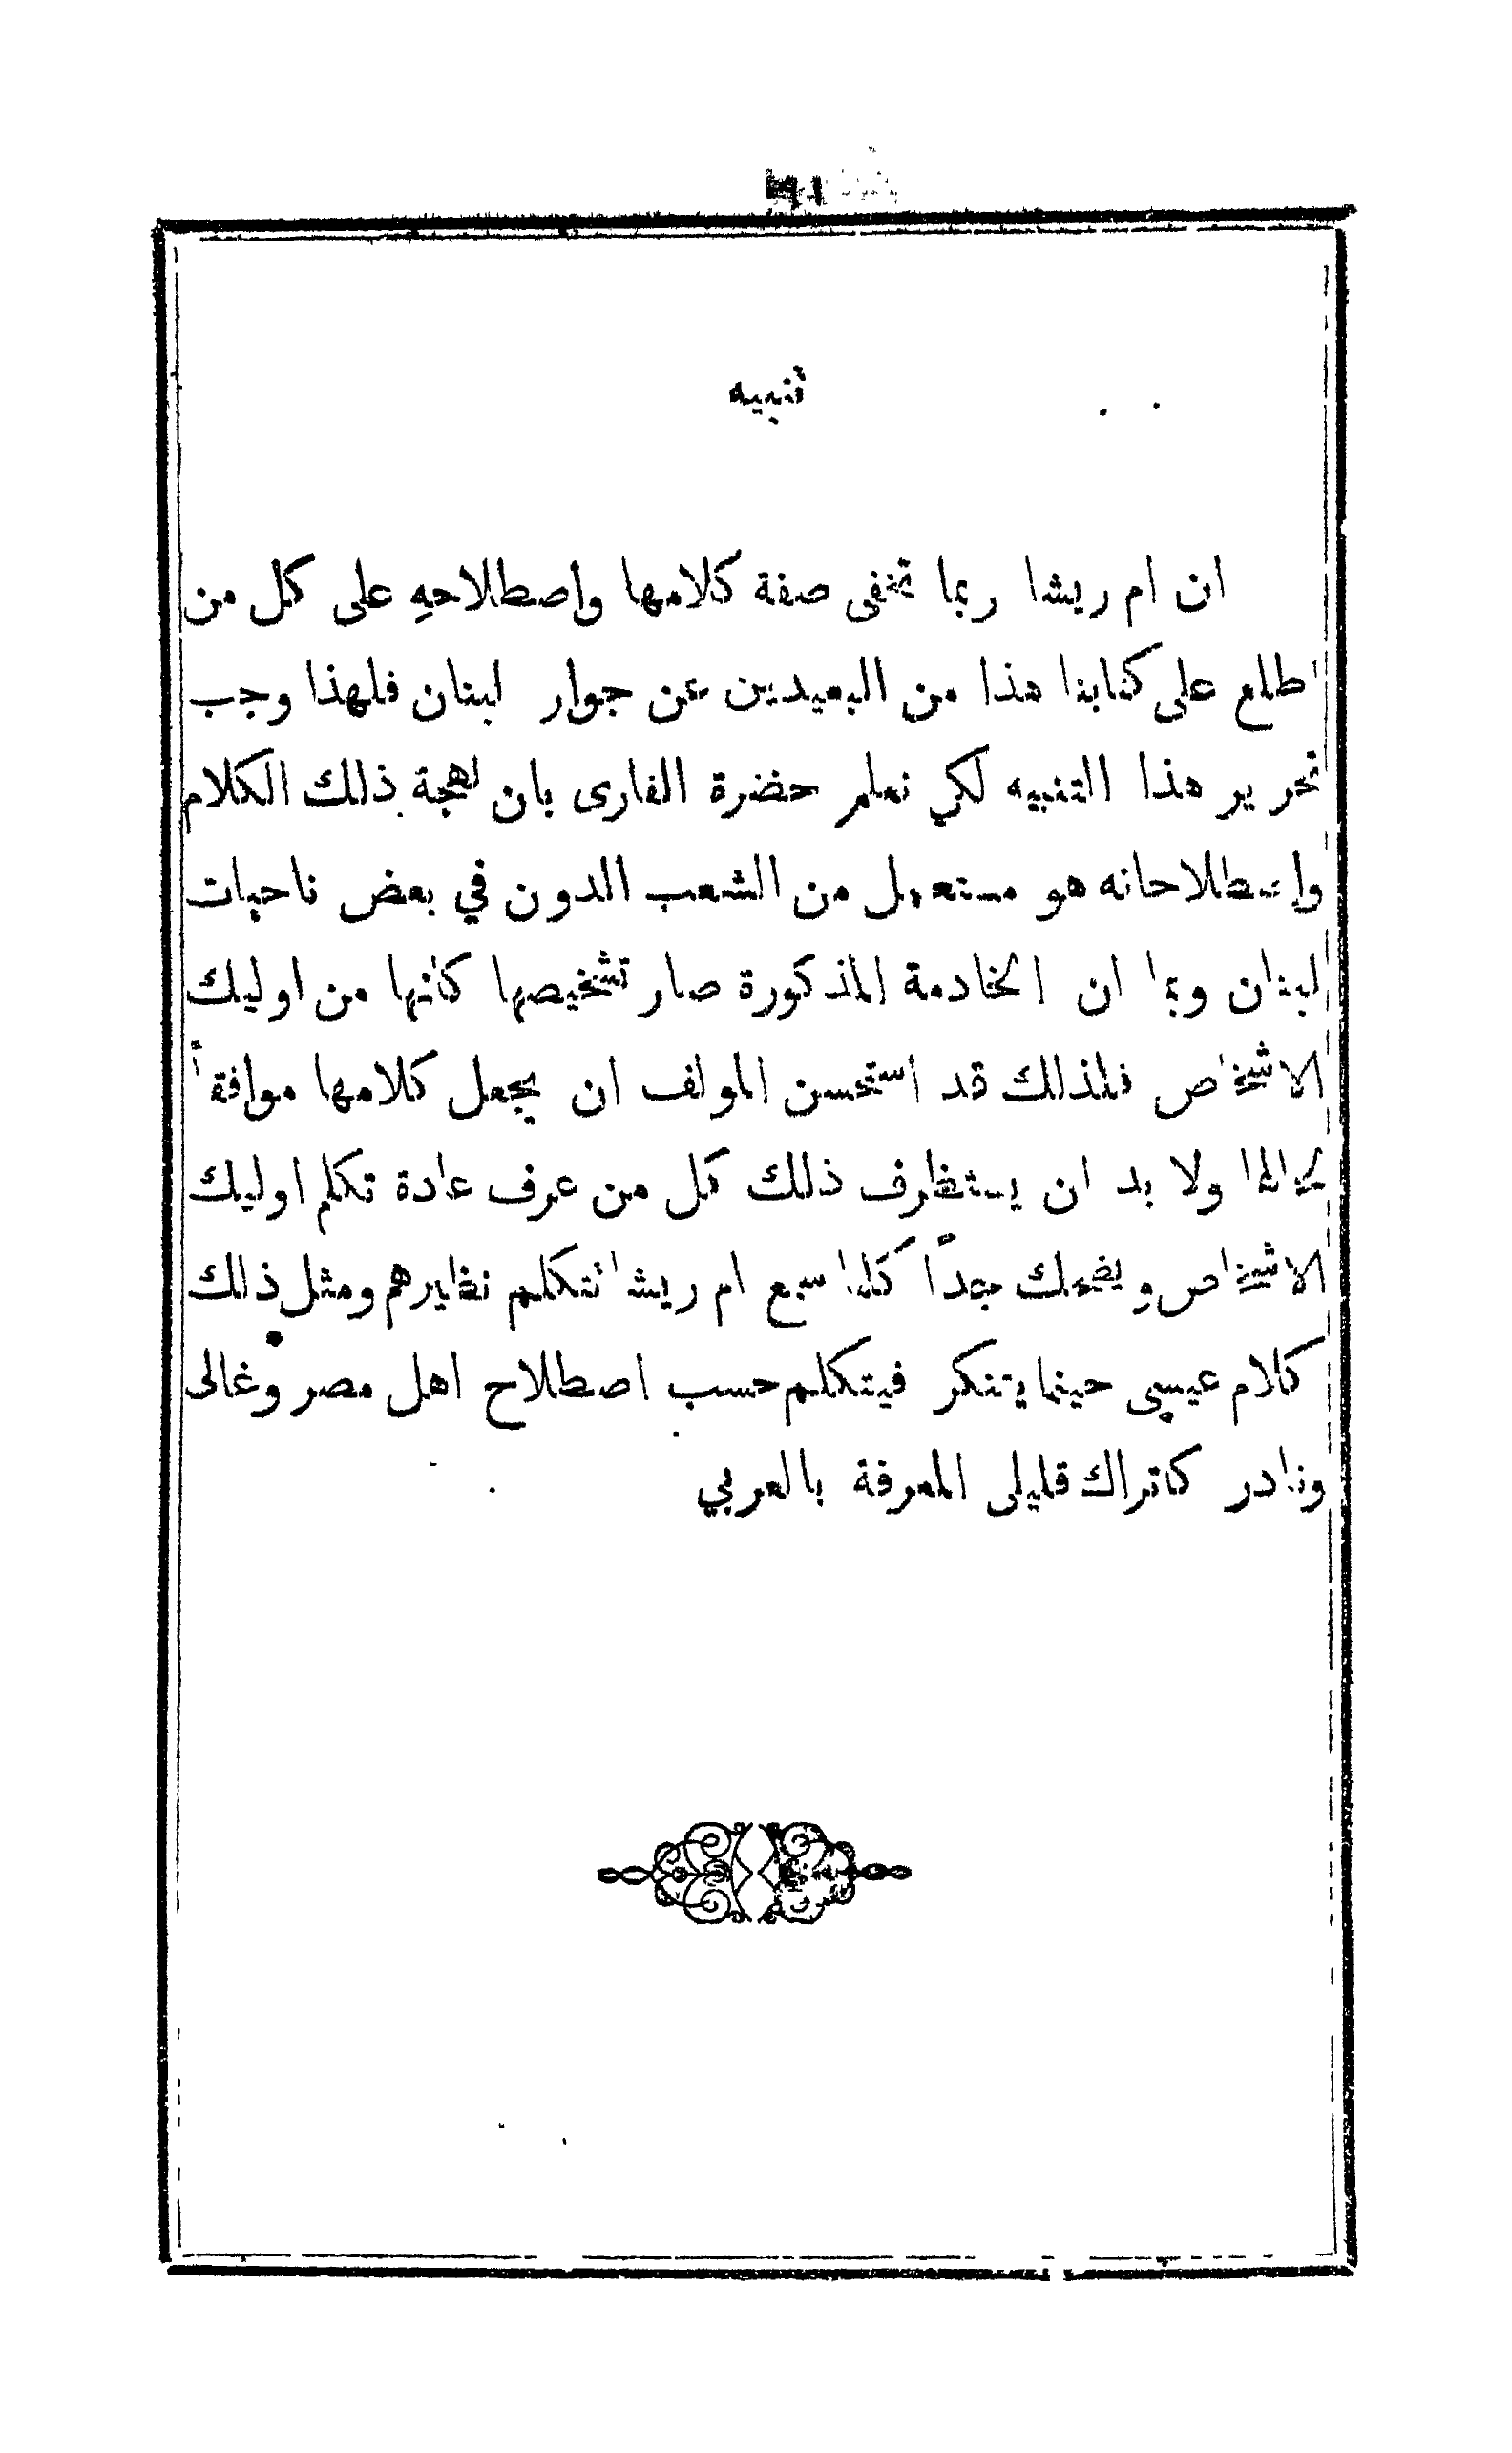 تنبيه
ان ام ريشا ربما تخفى صفة كلامها واصطلاحهِ على كل من
اطلع على كتابنا هذا من البعيدين عن جوار لبنان فلهذا وجب
تحرير هذا التنبيه لكي نعلم حضرة القارى بان لهجة ذلك الكلام
واصطلاحاته هو مستعمل من الشعب الدون في بعض ناحيات
لبنان وبما ان الخادمة المذكورة صار تشخيصها كانها من اوليك
الاشخاص فلذلك قد استحسن المولف ان يجعل كلامها موافقاً
لحالها ولا بد ان يستظرف ذلك كل من عرف عادة تكلم اوليك
الاشخاص ويضحك جداً كلما سمع ام ريشا تتكلم نظايرهم ومثل ذلك
كلام عيسى حينما يتنكر فيتكلم حسب اصطلاح اهل مصر وغالى
ونادر كاتراك قليلى المعرفة بالعربي